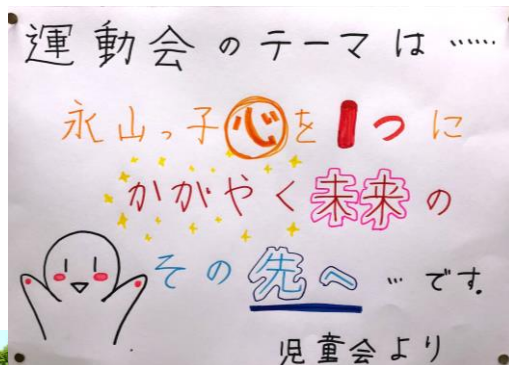 運動会のテーマは……
永山っ子心を1つに
かがやく未来の
その先へ…です。
児童会より